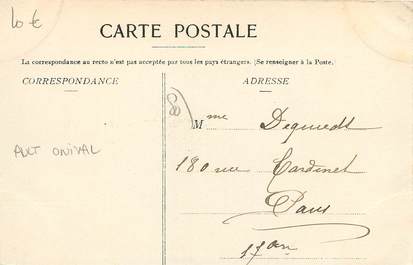 10 €
CARTE POSTALE
La correspondance au recto n'est pas acceptée par tous les pays étrangers. (Se renseigner à la Poste.
CORRESPONDANCE
ADRESSE
80
Mme
AULT ONIVAL
180 rue Cardinet
Paris
17 arr